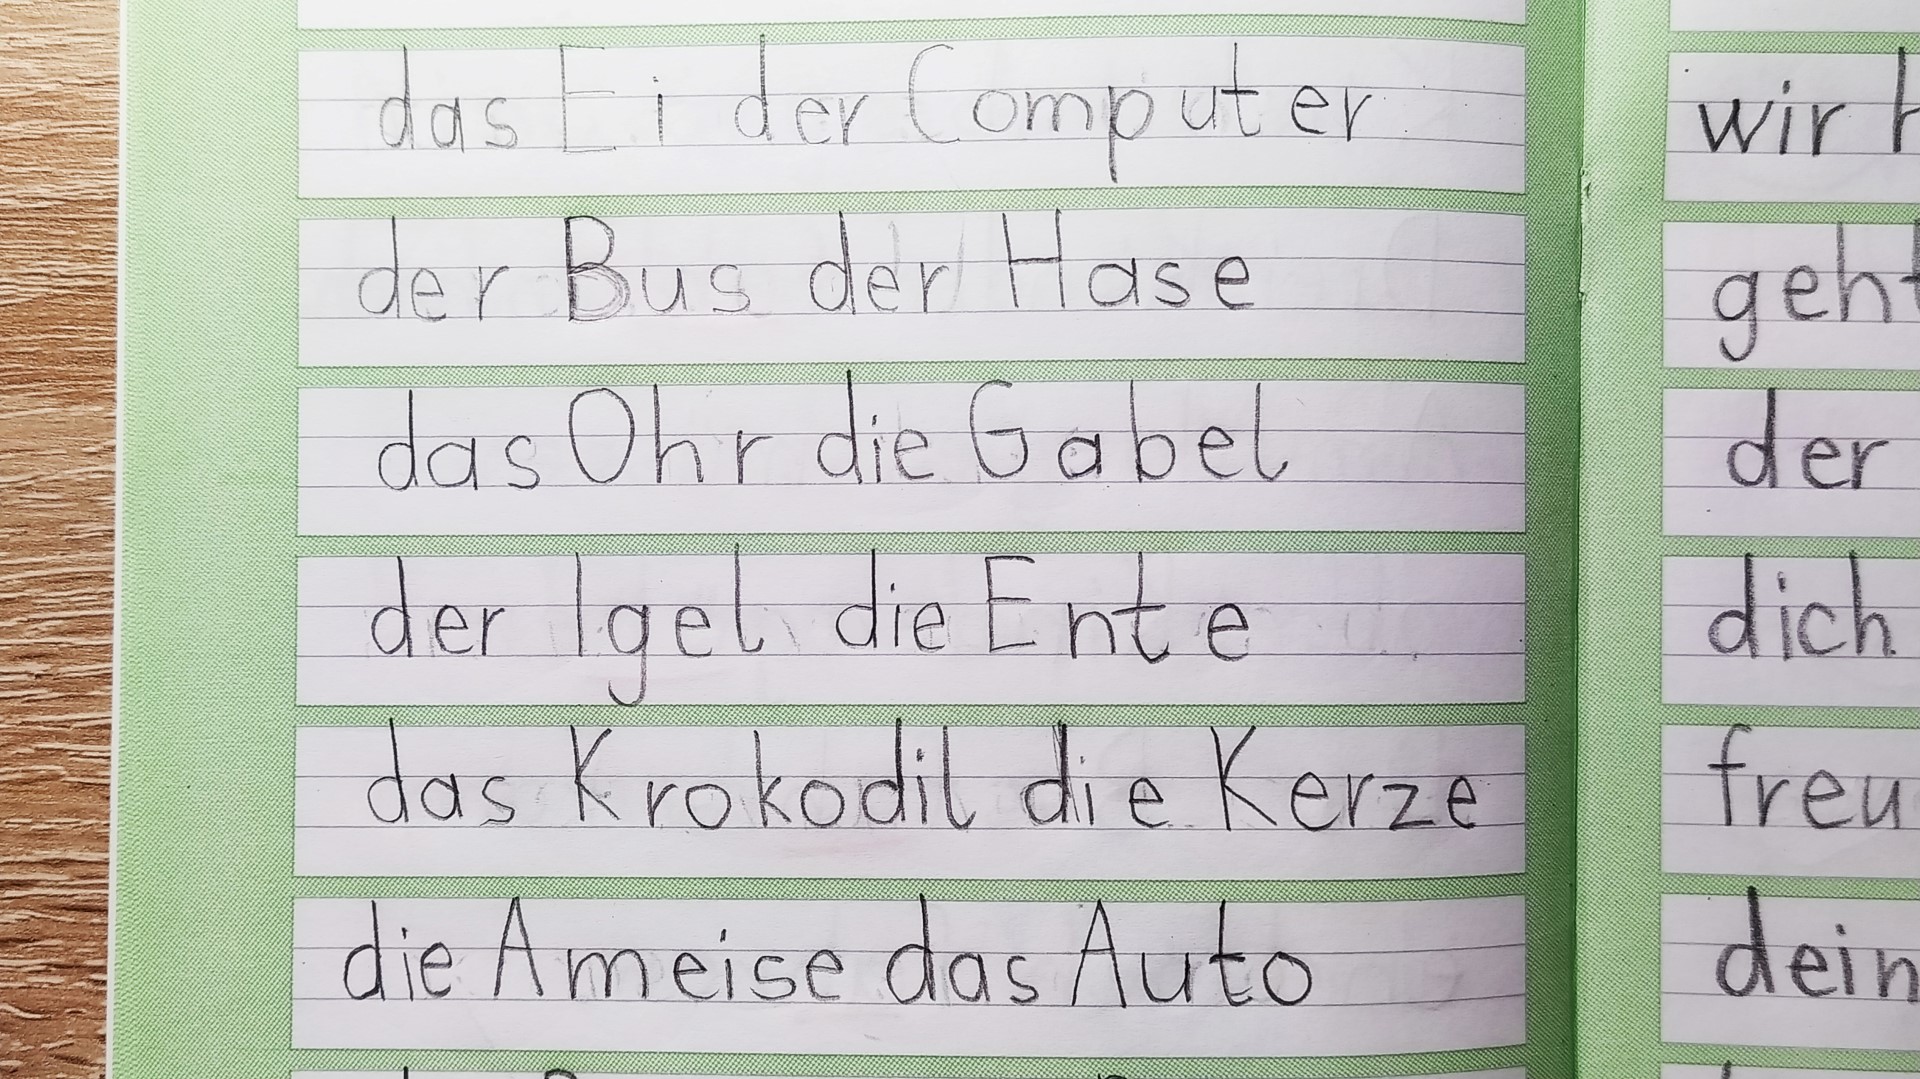 das Ei der Computer
der Bus der Hase
das Ohr die Gabel
der Igel die Ente
das Krokodil die Kerze
die Ameise das Auto
wir
geht
der
dich
freu
dein